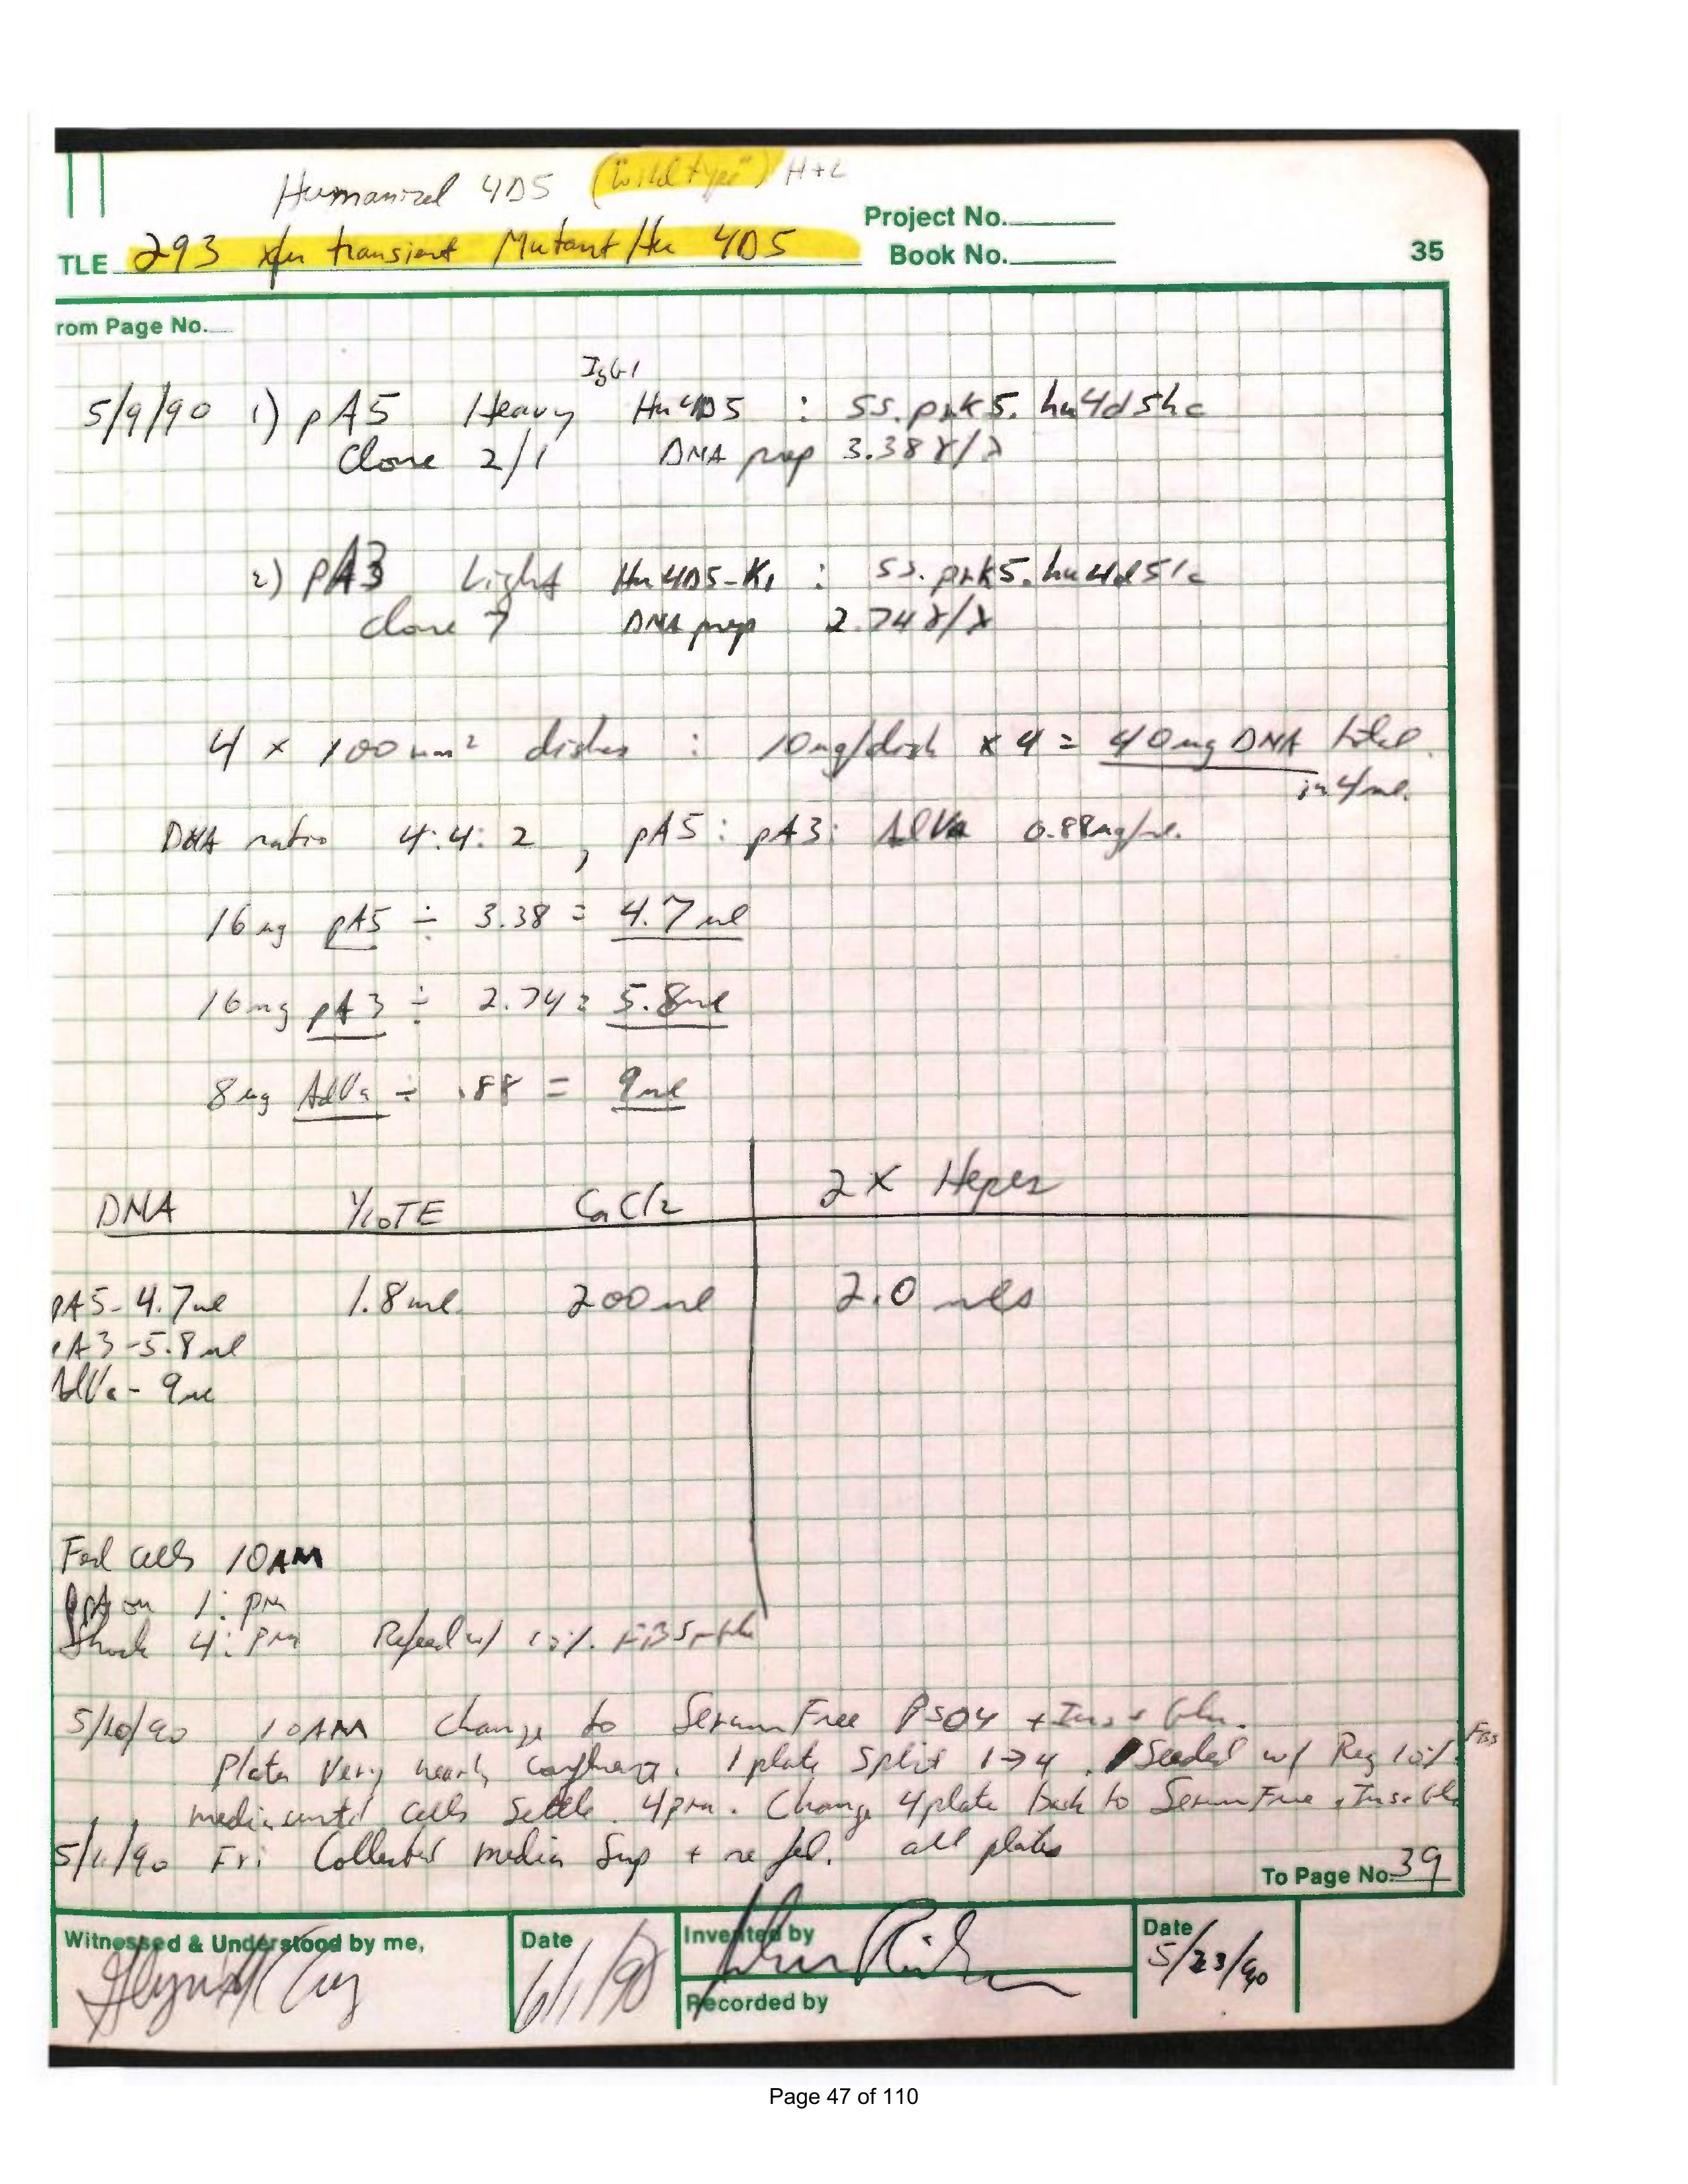 Humanized 4D5 ("wild type") H+L
TLE 293 xfn transient Mutant/Hu 4D5
Project No.
Book No.
35
rom Page No.
IgG1
5/9/90 1) pA5 Heavy Hu4D5 : ss.prk5.hu4d5hc
Clone 2/1 DNA prep 3.38 γ/λ
2) pA3 Light Hu4D5-K1 : ss.prk5.hu4d5lc
clone 7 DNA prep 2.74 γ/λ
4 x 100 mm² dishes : 10ug/dish x 4 = 40ug DNA total
in 4ml.
DNA ratio 4:4:2 , pA5 : pA3 : AdVa 0.88ug/ul.
16 ug pA5 ÷ 3.38 = 4.7 ul
16ug pA3 ÷ 2.74 = 5.8ul
8ug AdVa ÷ .88 = 9ul
DNA 1/10TE CaCl2 2X Hepes
pA5- 4.7ul 1.8ml 200ul 2.0 mls
pA3-5.8ul
AdVa- 9ul
Fed cells 10AM
on 1: PM
Shock 4: PM Refeed w/ 10% FBS
5/10/90 10AM Change to Serum Free PS04 + Ins + Gln.
Plates Very nearly confluent. 1 plate Split 1→4. Seeded w/ Reg 10% FBS
media until cells settle. 4pm. Change 4 plate back to Serum Free + Ins + Gln
5/11/90 Fri Collected media Sup + re fed. all plates
To Page No. 39
Witnessed & Understood by me,
Date
6/1/90
Invented by
Recorded by
Date
5/23/90
Page 47 of 110